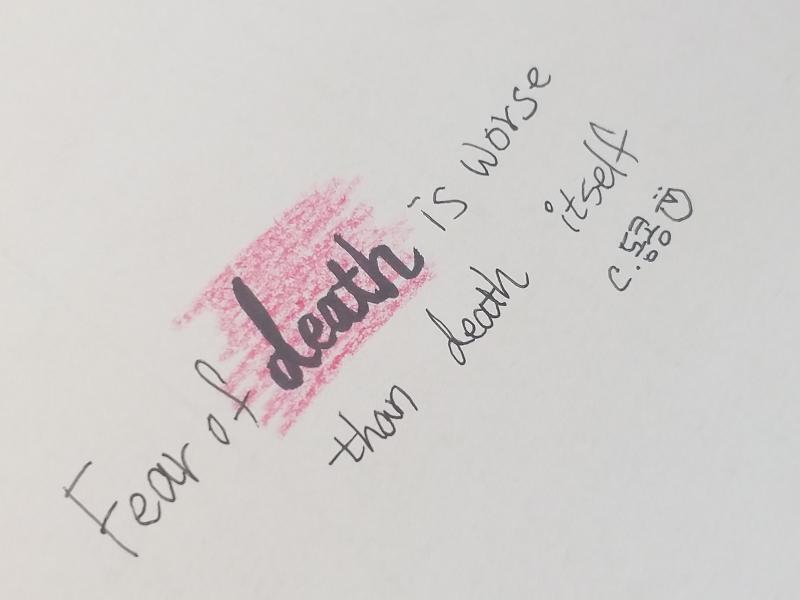 Fear of death is worse
than death itself
c.